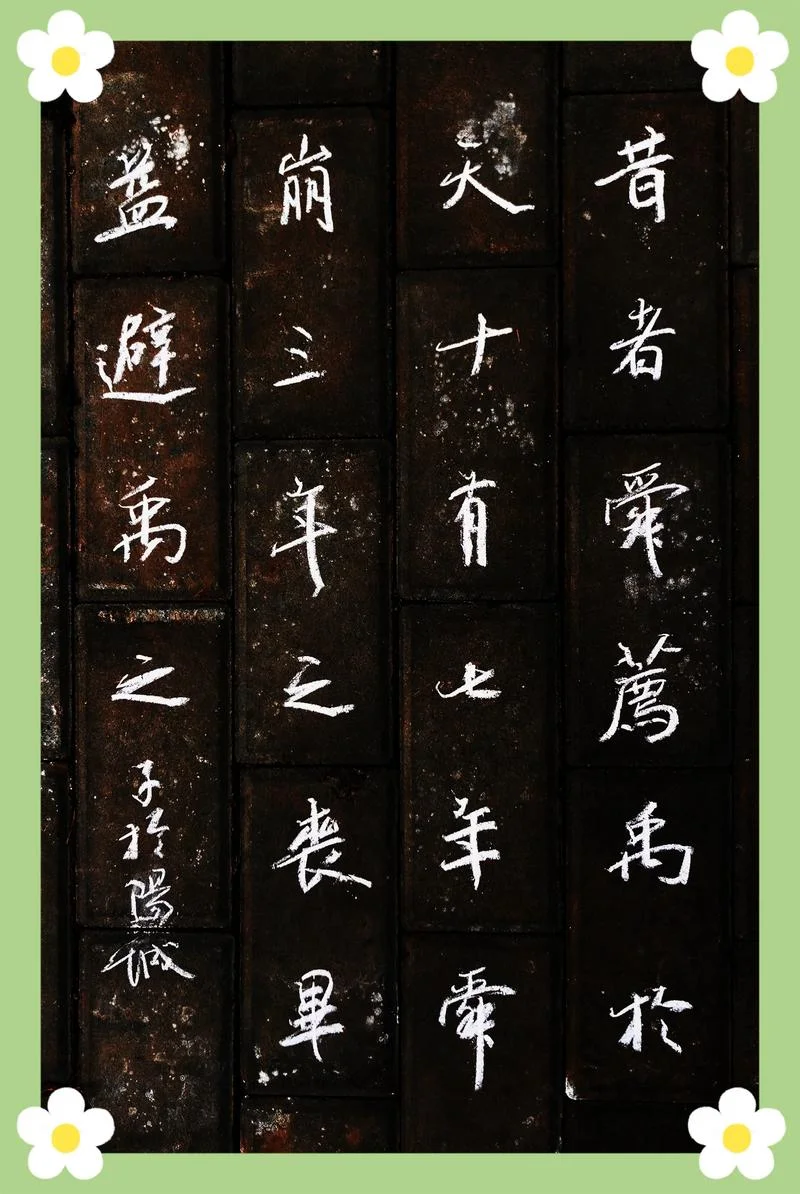 昔者舜薦禹於
天十有七年舜
崩三年之喪畢
益避禹之子於陽城